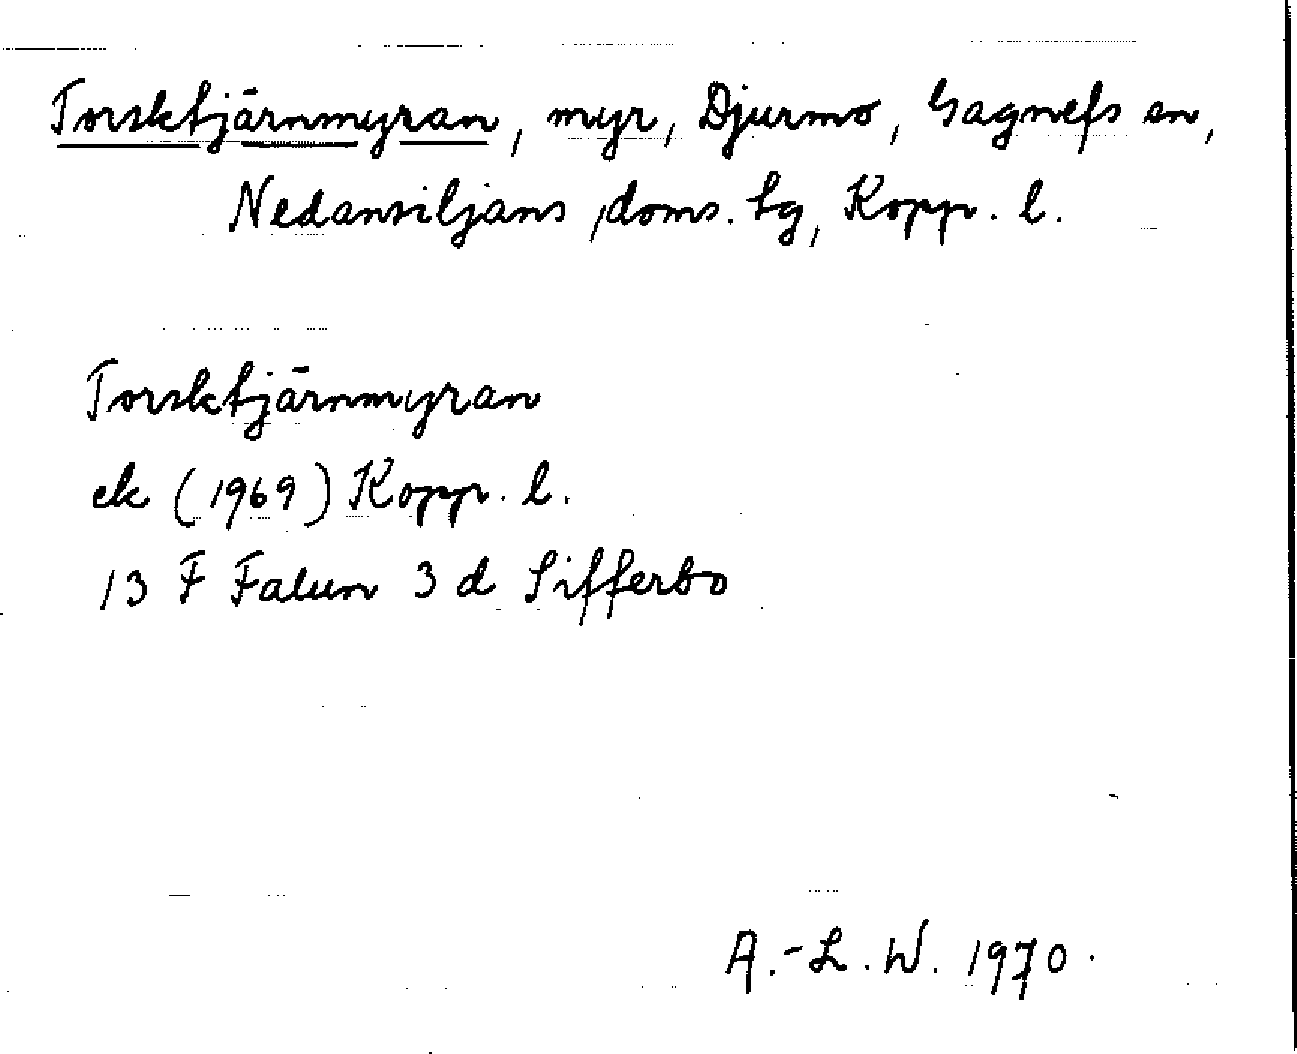 Torsktjärnmyran, myr, Djurmo, Gagnefs sn,
Nedansiljans doms. tg, Kopp. l.
Torsktjärnmyran
ek (1969) Kopp. l.
13 F Falun 3 d Sifferbo
A.-L. W. 1970.